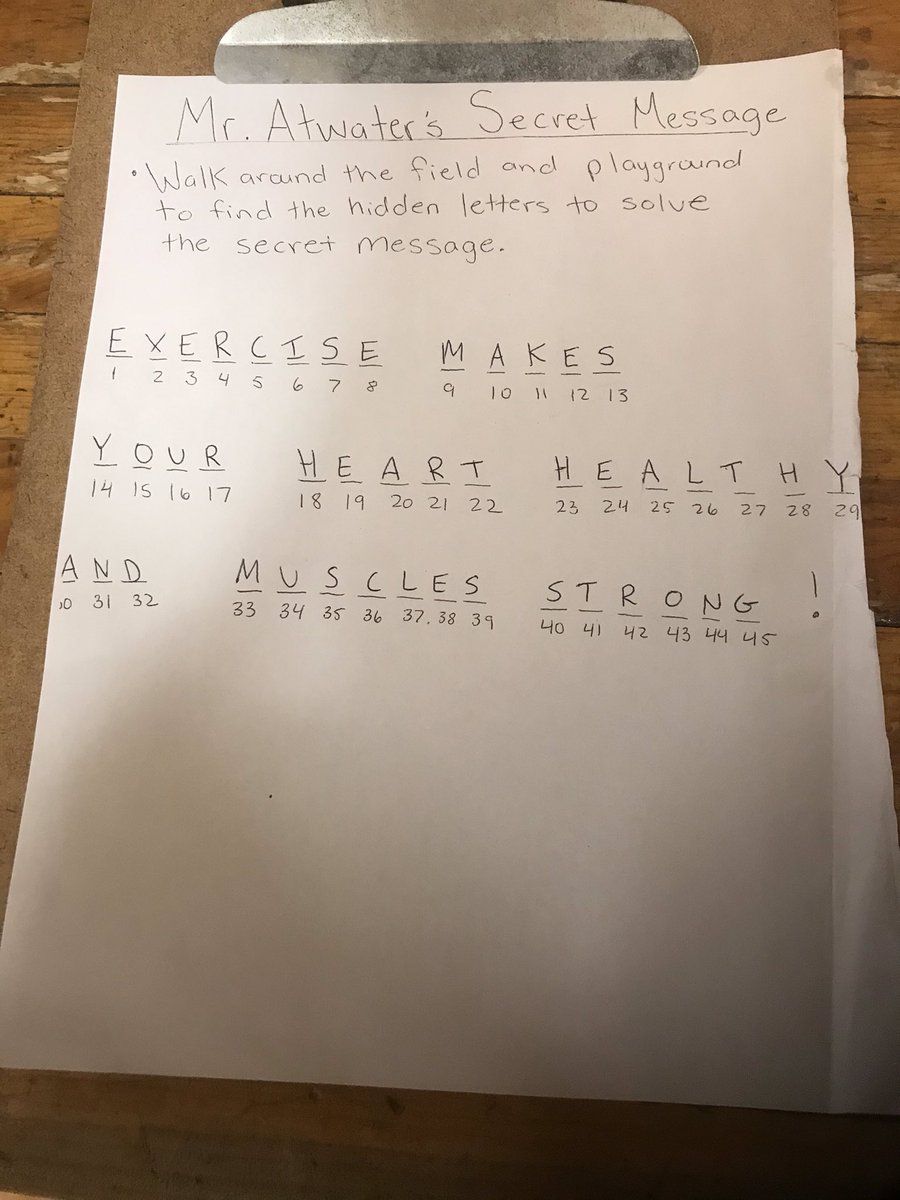 Mr. Atwater's Secret Message
• Walk around the field and playground
to find the hidden letters to solve
the secret message.
E X E R C I S E M A K E S
1 2 3 4 5 6 7 8 9 10 11 12 13
Y O U R H E A R T H E A L T H Y
14 15 16 17 18 19 20 21 22 23 24 25 26 27 28 29
A N D M U S C L E S S T R O N G !
30 31 32 33 34 35 36 37. 38 39 40 41 42 43 44 45